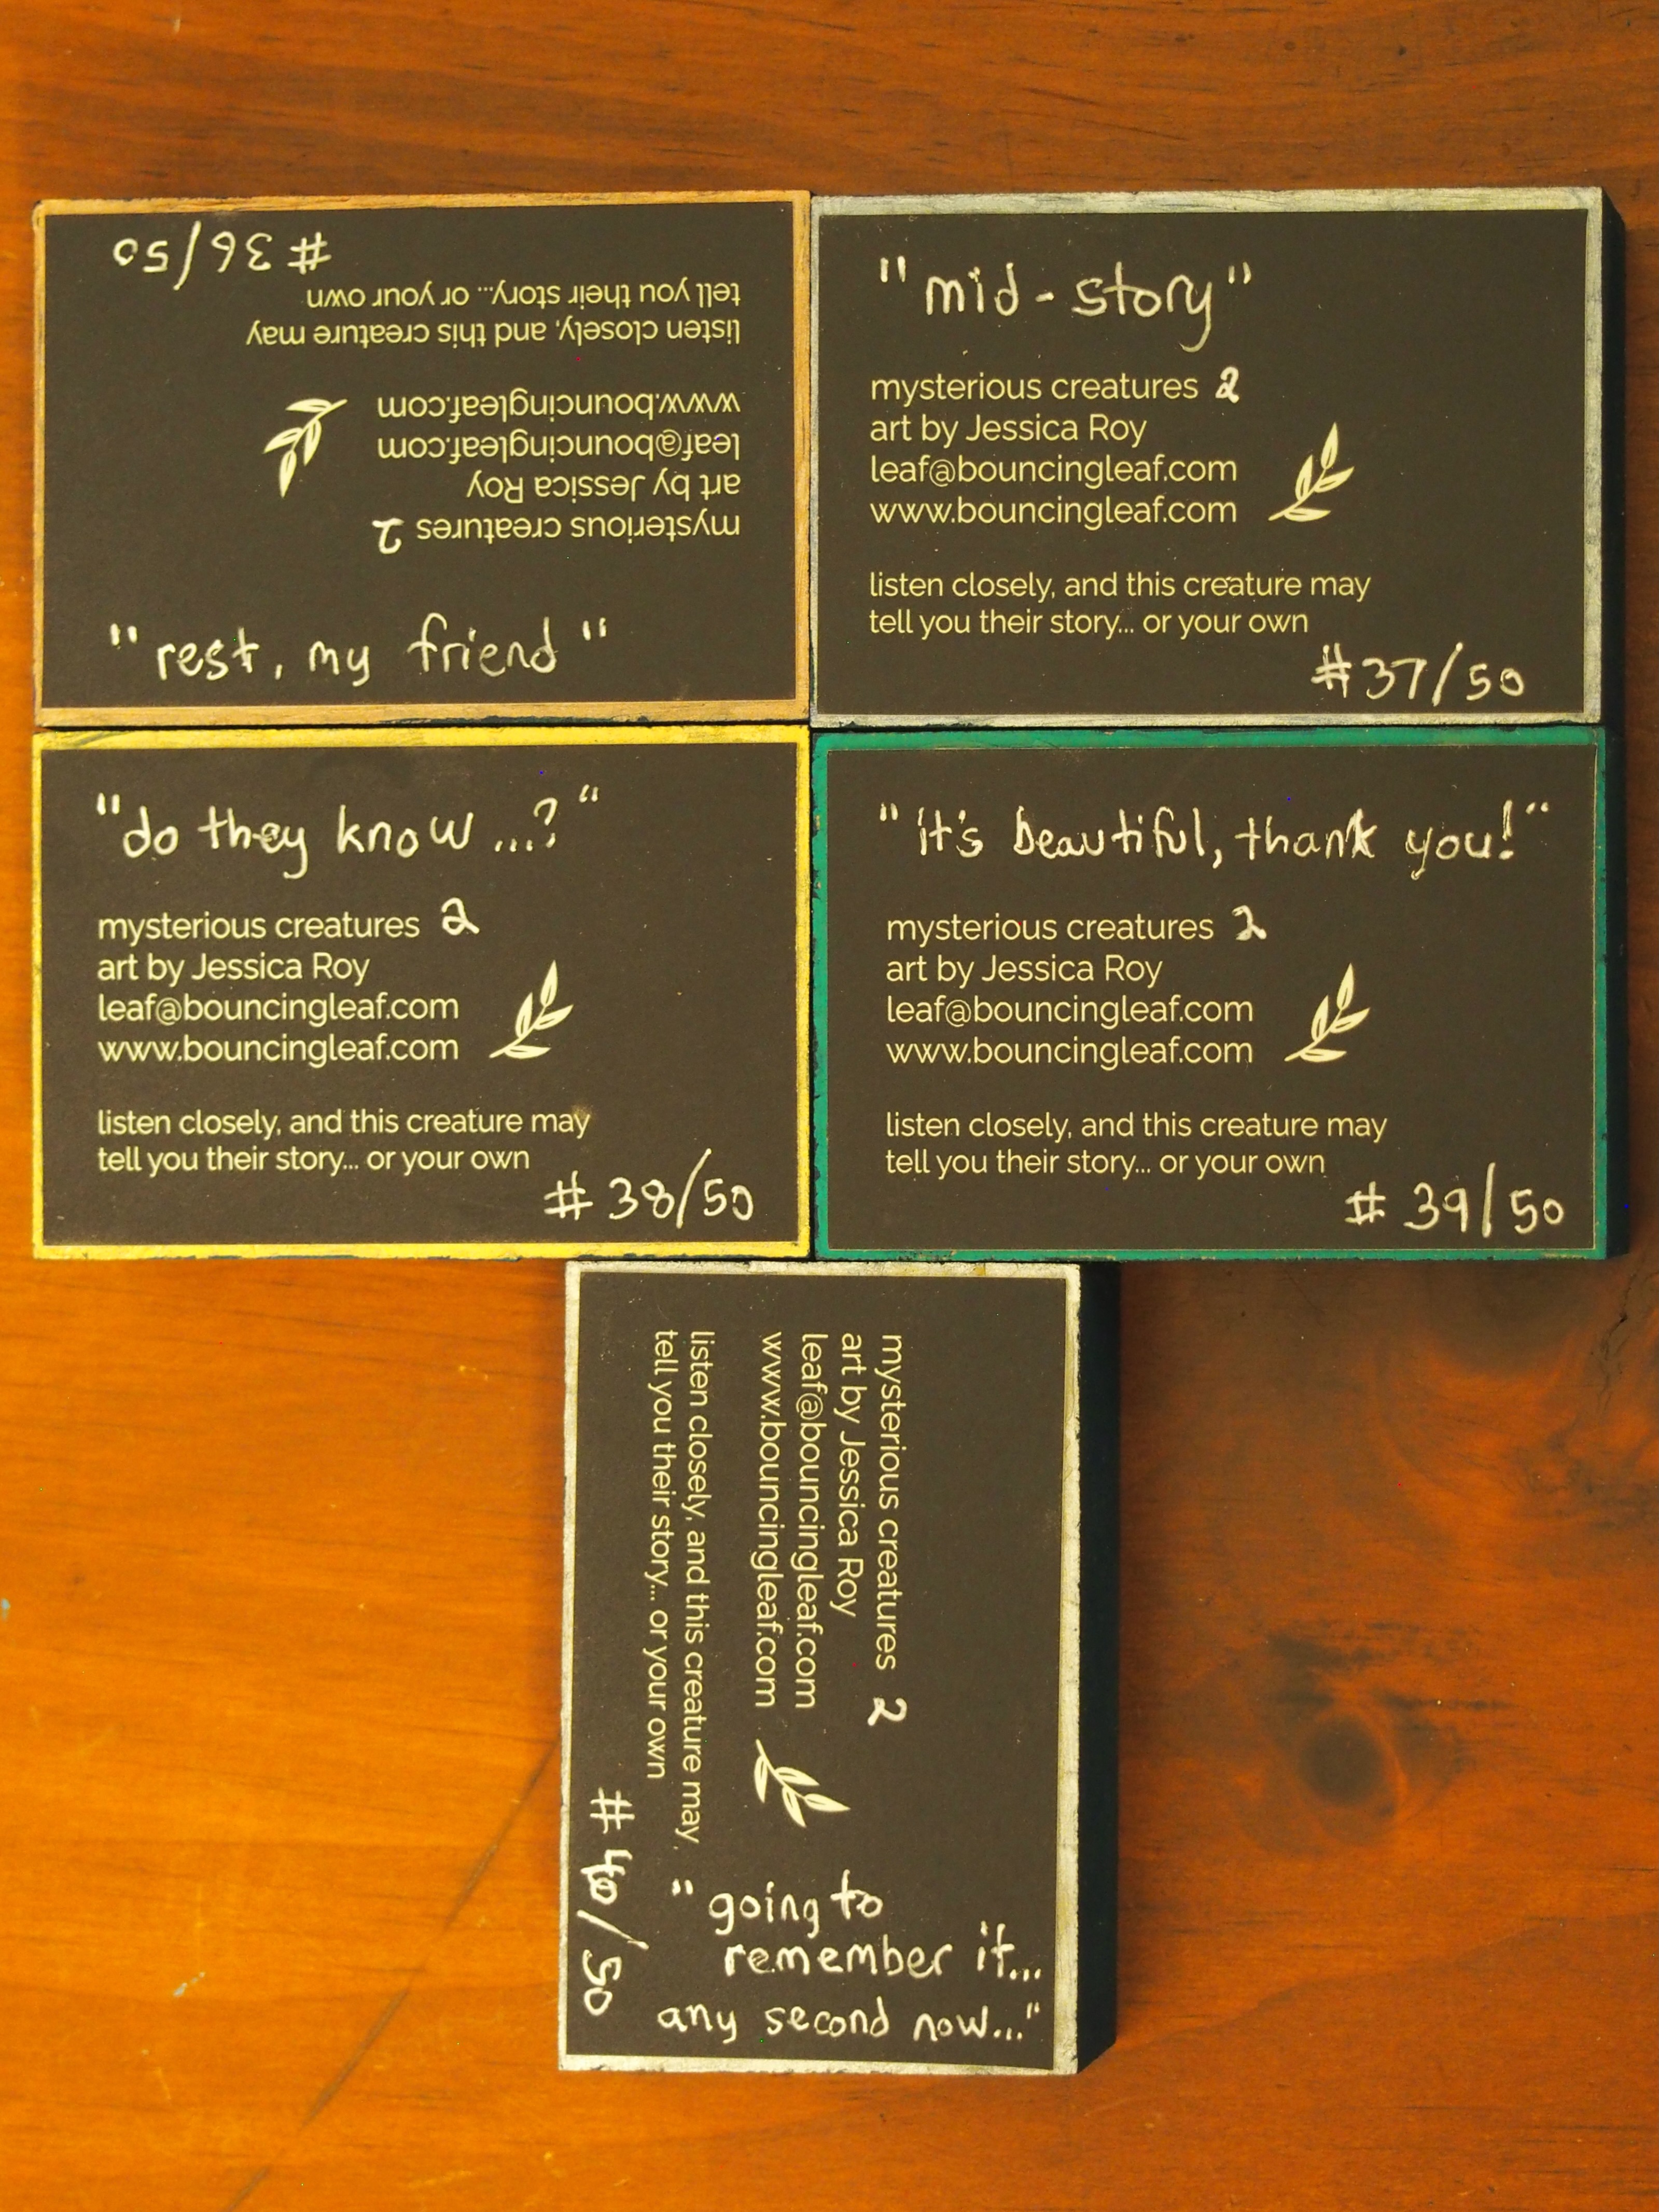 "rest, my friend"
mysterious creatures 2
art by Jessica Roy
leaf@bouncingleaf.com
www.bouncingleaf.com
listen closely, and this creature may
tell you their story... or your own
# 36/50
"mid-story"
mysterious creatures 2
art by Jessica Roy
leaf@bouncingleaf.com
www.bouncingleaf.com
listen closely, and this creature may
tell you their story... or your own
#37/50
"do they know...?"
mysterious creatures 2
art by Jessica Roy
leaf@bouncingleaf.com
www.bouncingleaf.com
listen closely, and this creature may
tell you their story... or your own
# 38/50
"it's beautiful, thank you!"
mysterious creatures 2
art by Jessica Roy
leaf@bouncingleaf.com
www.bouncingleaf.com
listen closely, and this creature may
tell you their story... or your own
# 39/50
mysterious creatures 2
art by Jessica Roy
leaf@bouncingleaf.com
www.bouncingleaf.com
listen closely, and this creature may
tell you their story... or your own
# 40/50
"going to
remember it...
any second now..."